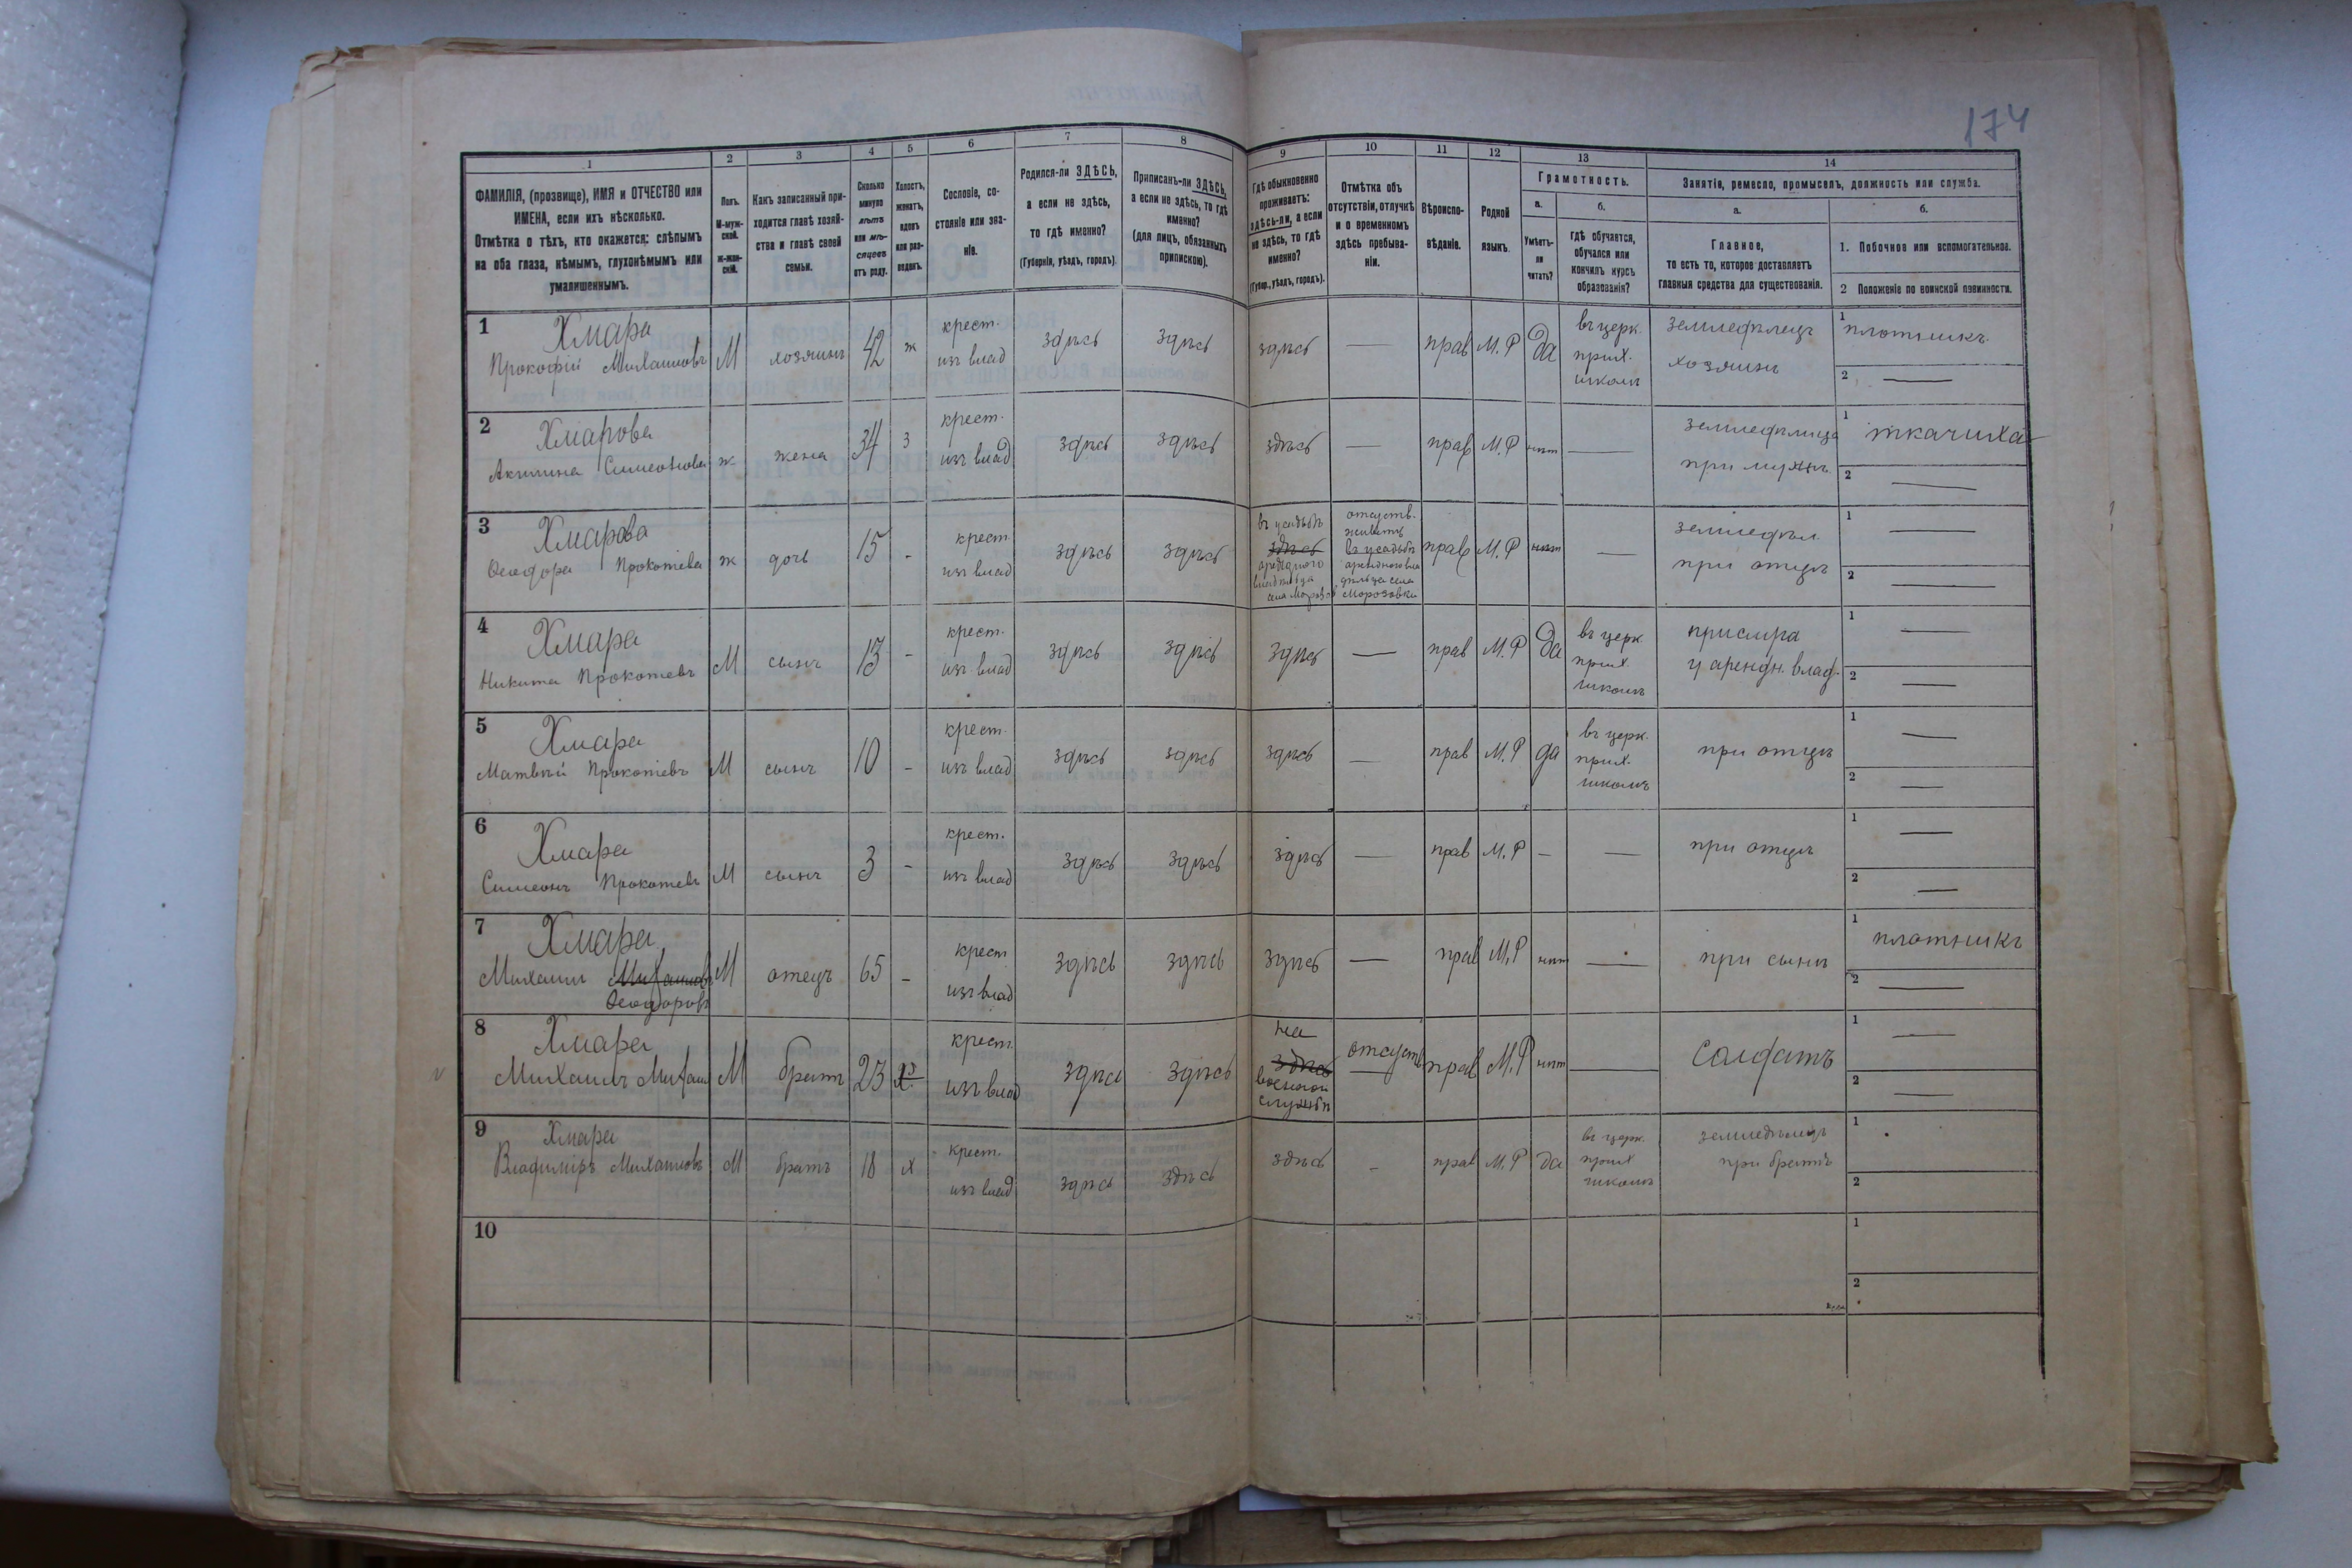 174
1
2
3
4
5
6
7
8
9
10
11
12
13
14
ФАМИЛІЯ, (прозвище), ИМЯ и ОТЧЕСТВО или
ИМЕНА, если ихъ нѣсколько.
Отмѣтка о тѣхъ, кто окажется: слѣпымъ
на оба глаза, нѣмымъ, глухонѣмымъ или
умалишеннымъ.
Полъ.
М-муж-
ской.
ж-жен-
скій.
Какъ записанный при-
ходится главѣ хозяй-
ства и главѣ своей
семьи.
Сколько
минуло
лѣтъ
или мѣ-
сяцевъ
отъ роду.
Холостъ,
женатъ,
вдовъ
или раз-
веденъ.
Сословіе, со-
стояніе или зва-
ніе.
Родился-ли ЗДѢСЬ,
а если не здѣсь,
то гдѣ именно?
(Губернія, уѣздъ, городъ).
Приписанъ-ли ЗДѢСЬ,
а если не здѣсь, то гдѣ
именно?
(для лицъ, обязанныхъ
припискою).
Гдѣ обыкновенно
проживаетъ:
здѣсь-ли, а если
не здѣсь, то гдѣ
именно?
(Губер., уѣздъ, городъ).
Отмѣтка объ
отсутствіи, отлучкѣ
и о временномъ
здѣсь пребыва-
ніи.
Вѣроиспо-
вѣданіе.
Родной
языкъ.
Грамотность.
а.
Умѣетъ-
ли
читать?
б.
гдѣ обучается,
обучался или
кончилъ курсъ
образованія?
Занятіе, ремесло, промыселъ, должность или служба.
а.
Главное,
то есть то, которое доставляетъ
главныя средства для существованія.
б.
1. Побочное или вспомогательное.
2 Положеніе по воинской повинности.
1
Хмара
Прокофій Михаиловъ
М
хозяинъ
42
ж
крест.
изъ влад
здѣсь
здѣсь
здѣсь
—
прав
М.Р
Да
въ церк.
прих.
школѣ
земледѣлецъ
хозяинъ
1
плотникъ
2
—
2
Хмарова
Акилина Симеонова
ж
жена
34
з
крест.
изъ влад
здѣсь
здѣсь
здѣсь
—
прав
М.Р
нѣт
—
земледѣлица
при мужѣ
1
ткачиха
2
—
3
Хмарова
Ѳеодора Прокопіева
ж
дочь
15
-
крест
изъ влад
здѣсь
здѣсь
въ усадьбѣ
здѣсь
арендного
владѣльца
села Морозов
отсутств.
живетъ
въ усадьбѣ
арендного вла
дѣльца села
Морозовки
прав
М.Р
нѣт
—
земледѣл.
при отцѣ
1
—
2
—
4
Хмара
Никита Прокопіевъ
М
сынъ
13
-
крест.
изъ влад
здѣсь
здѣсь
здѣсь
—
прав
М.Р
Да
въ церк
прих.
школѣ
прислуга
у арендн. влад.
1
—
2
—
5
Хмара
Матвѣй Прокопіевъ
М
сынъ
10
-
крест.
изъ влад
здѣсь
здѣсь
здѣсь
—
прав
М.Р
да
въ церк.
прих.
школѣ
при отцѣ
1
—
2
—
6
Хмара
Симеонъ Прокопіевъ
М
сынъ
3
-
крест.
изъ влад
здѣсь
здѣсь
здѣсь
—
прав
М.Р
—
—
при отцѣ
1
—
2
—
7
Хмара
Михаилъ Михаиловъ
Ѳеодоровъ
М
отецъ
65
-
крест
изъ влад
здѣсь
здѣсь
здѣсь
—
прав
М.Р
нѣт
—
при сынѣ
1
плотникъ
2
—
8
Хмара
Михаилъ Михаил
М
братъ
23
крест.
изъ влад
здѣсь
здѣсь
на
здѣсь
военной
службѣ
отсутств
прав
М.Р
нѣт
—
солдатъ
1
—
2
—
9
Хмара
Владиміръ Михаиловъ
М
братъ
18
х
крест.
изъ влад
здѣсь
здѣсь
здѣсь
-
прав
М.Р
да
въ церк.
прих
школѣ
земледѣлецъ
при братѣ
1
2
10
1
2